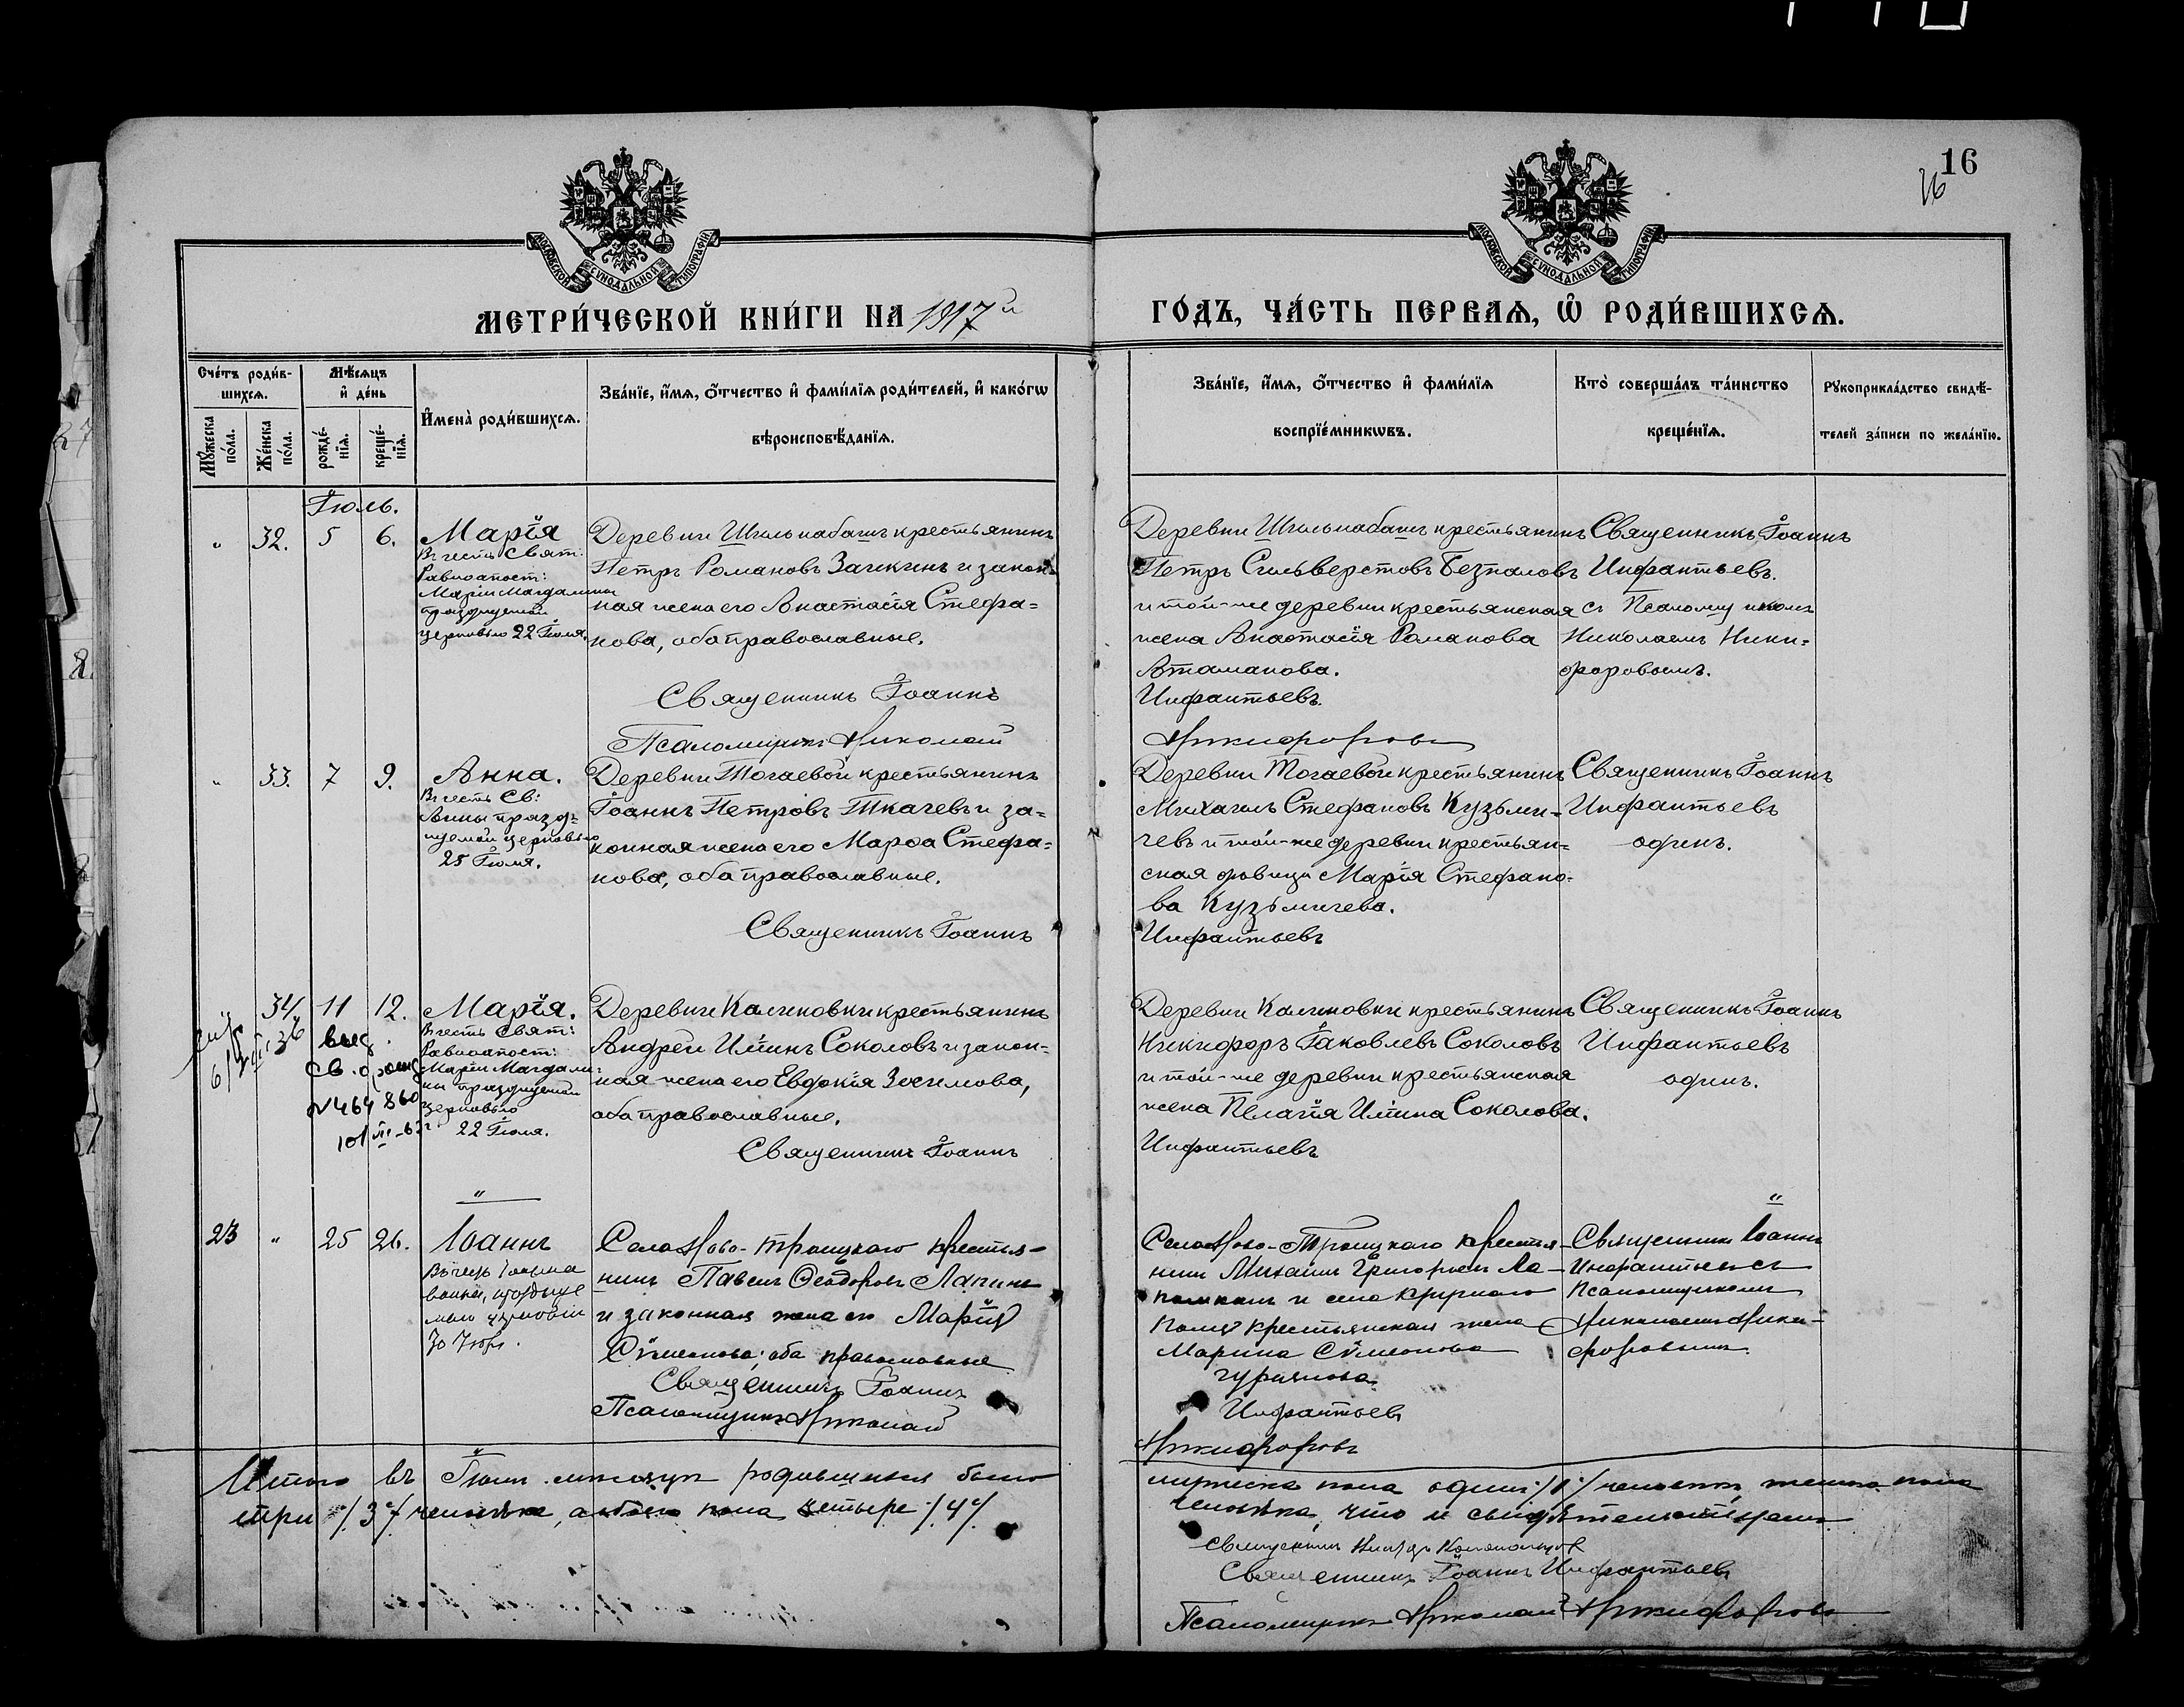 16
16
МОСКОВСКОЙ СУНОДАЛЬНОЙ ТИПОГРАФІИ
МОСКОВСКОЙ СУНОДАЛЬНОЙ ТИПОГРАФІИ
МЕТРИ́ЧЕСКОЙ КНИ́ГИ НА 1917й
ГО́ДЪ, ЧА́СТЬ ПЕРВАѦ, Ѡ҆ РОДИ́ВШИХСѦ.
Сче́тъ роди́в-
шихсѧ.
Мꙋ́жеска по́ла.
Же́нска по́ла.
Мѣ́сяцъ
и҆ де́нь
рожде́-нїѧ.
креще́-нїѧ.
И҆мена̀ роди́вшихсѧ.
Зва́нїе, и҆́мѧ, ѻ҆́тчество и҆ фами́лїѧ роди́телей, и҆ како́гѡ
вѣроисповѣ́данїѧ.
Зва́нїе, и҆́мѧ, ѻ҆́тчество и҆ фами́лїѧ
воспрїе́мникѡвъ.
Кто̀ соверша́лъ та́инство
креще́нїѧ.
Рꙋкоприкла́дство свидѣ́-
телей за́писи по жела́нїю.
Іюль.
" 32. 5 6. Марія
Въ честь Свят:
Равноапост:
Маріи Магдалины
празднуемой
церковью 22 Іюля.
Деревни крестьянинъ
Петръ Романовъ Заикинъ и закон-
ная жена его Анастасія Стефа=
нова, оба православные.
Священникъ Іоаннъ
Псаломщикъ Николай
Деревни крестьянинъ
Петръ Сильверстовъ Безпаловъ
и той-же деревни крестьянская
жена Анастасія Романова
Атаманова.
Инфантьевъ.
Никифоровъ
Священникъ Іоаннъ
Инфантьевъ.
съ Псаломщикомъ
Николаемъ Ники=
форовымъ.
" 33. 7 9. Анна.
Въ честь Св:
Анны празд-
нуемой церковью
25 Іюля.
Деревни Тогаевой крестьянинъ
Іоаннъ Петровъ Ткачевъ и за=
конная жена его Марѳа Стефа=
нова, оба православные.
Священникъ Іоаннъ
Деревни Тогаевой крестьянинъ
Михаилъ Стефановъ Кузьми-
чевъ и той-же деревни крестьян=
ская девица Марія Стефано-
ва Кузьмичева.
Инфантьевъ
Священникъ Іоаннъ
Инфантьевъ
одинъ.
34 11 12. Марія.
Въ честь Свят:
Равноапост:
Маріи Магдали-
ны празднуемой
церковью
22 Іюля.
36
выд.
св. о рожд
№ 464860
Деревни Калиновки крестьянинъ
Андрей Ильинъ Соколовъ и закон-
ная жена его Евдокія Зосимова,
оба православные.
Священникъ Іоаннъ
Деревни Калиновки крестьянинъ
Никифоръ Іаковлевъ Соколовъ
и той-же деревни крестьянская
жена Пелагія Ильина Соколова.
Инфантьевъ
Священникъ Іоаннъ
Инфантьевъ
одинъ.
23 " 25 26. Іоаннъ
Въ честь Іоанна
30 Іюля.
Села Ново-Троицкаго крестья-
нинъ Павелъ Ѳеодоровъ Лапинъ
и законная жена его Марія
Сѵмеонова; оба православные
Священникъ Іоаннъ
Псаломщикъ Николай
Села Ново-Троицкаго крестья-
нинъ Михаилъ Григорьевъ
и села
крестьянская жена
Марина Сѵмеонова
Гурьянова
Инфантьевъ
Никифоровъ
Священникъ Іоаннъ
Инфантьевъ съ
Псаломщикомъ
Николаемъ Ники-
форовымъ.
Итого въ Іюлѣ мѣсяцѣ родившихся было
мужеска пола одинъ /1/ человѣкъ, женска пола
три /3/ человѣка, обоего пола четыре /4/
человѣка, что и свидѣтельствуемъ
Священникъ
Священникъ Іоаннъ Инфантьевъ
Псаломщикъ Николай Никифоровъ